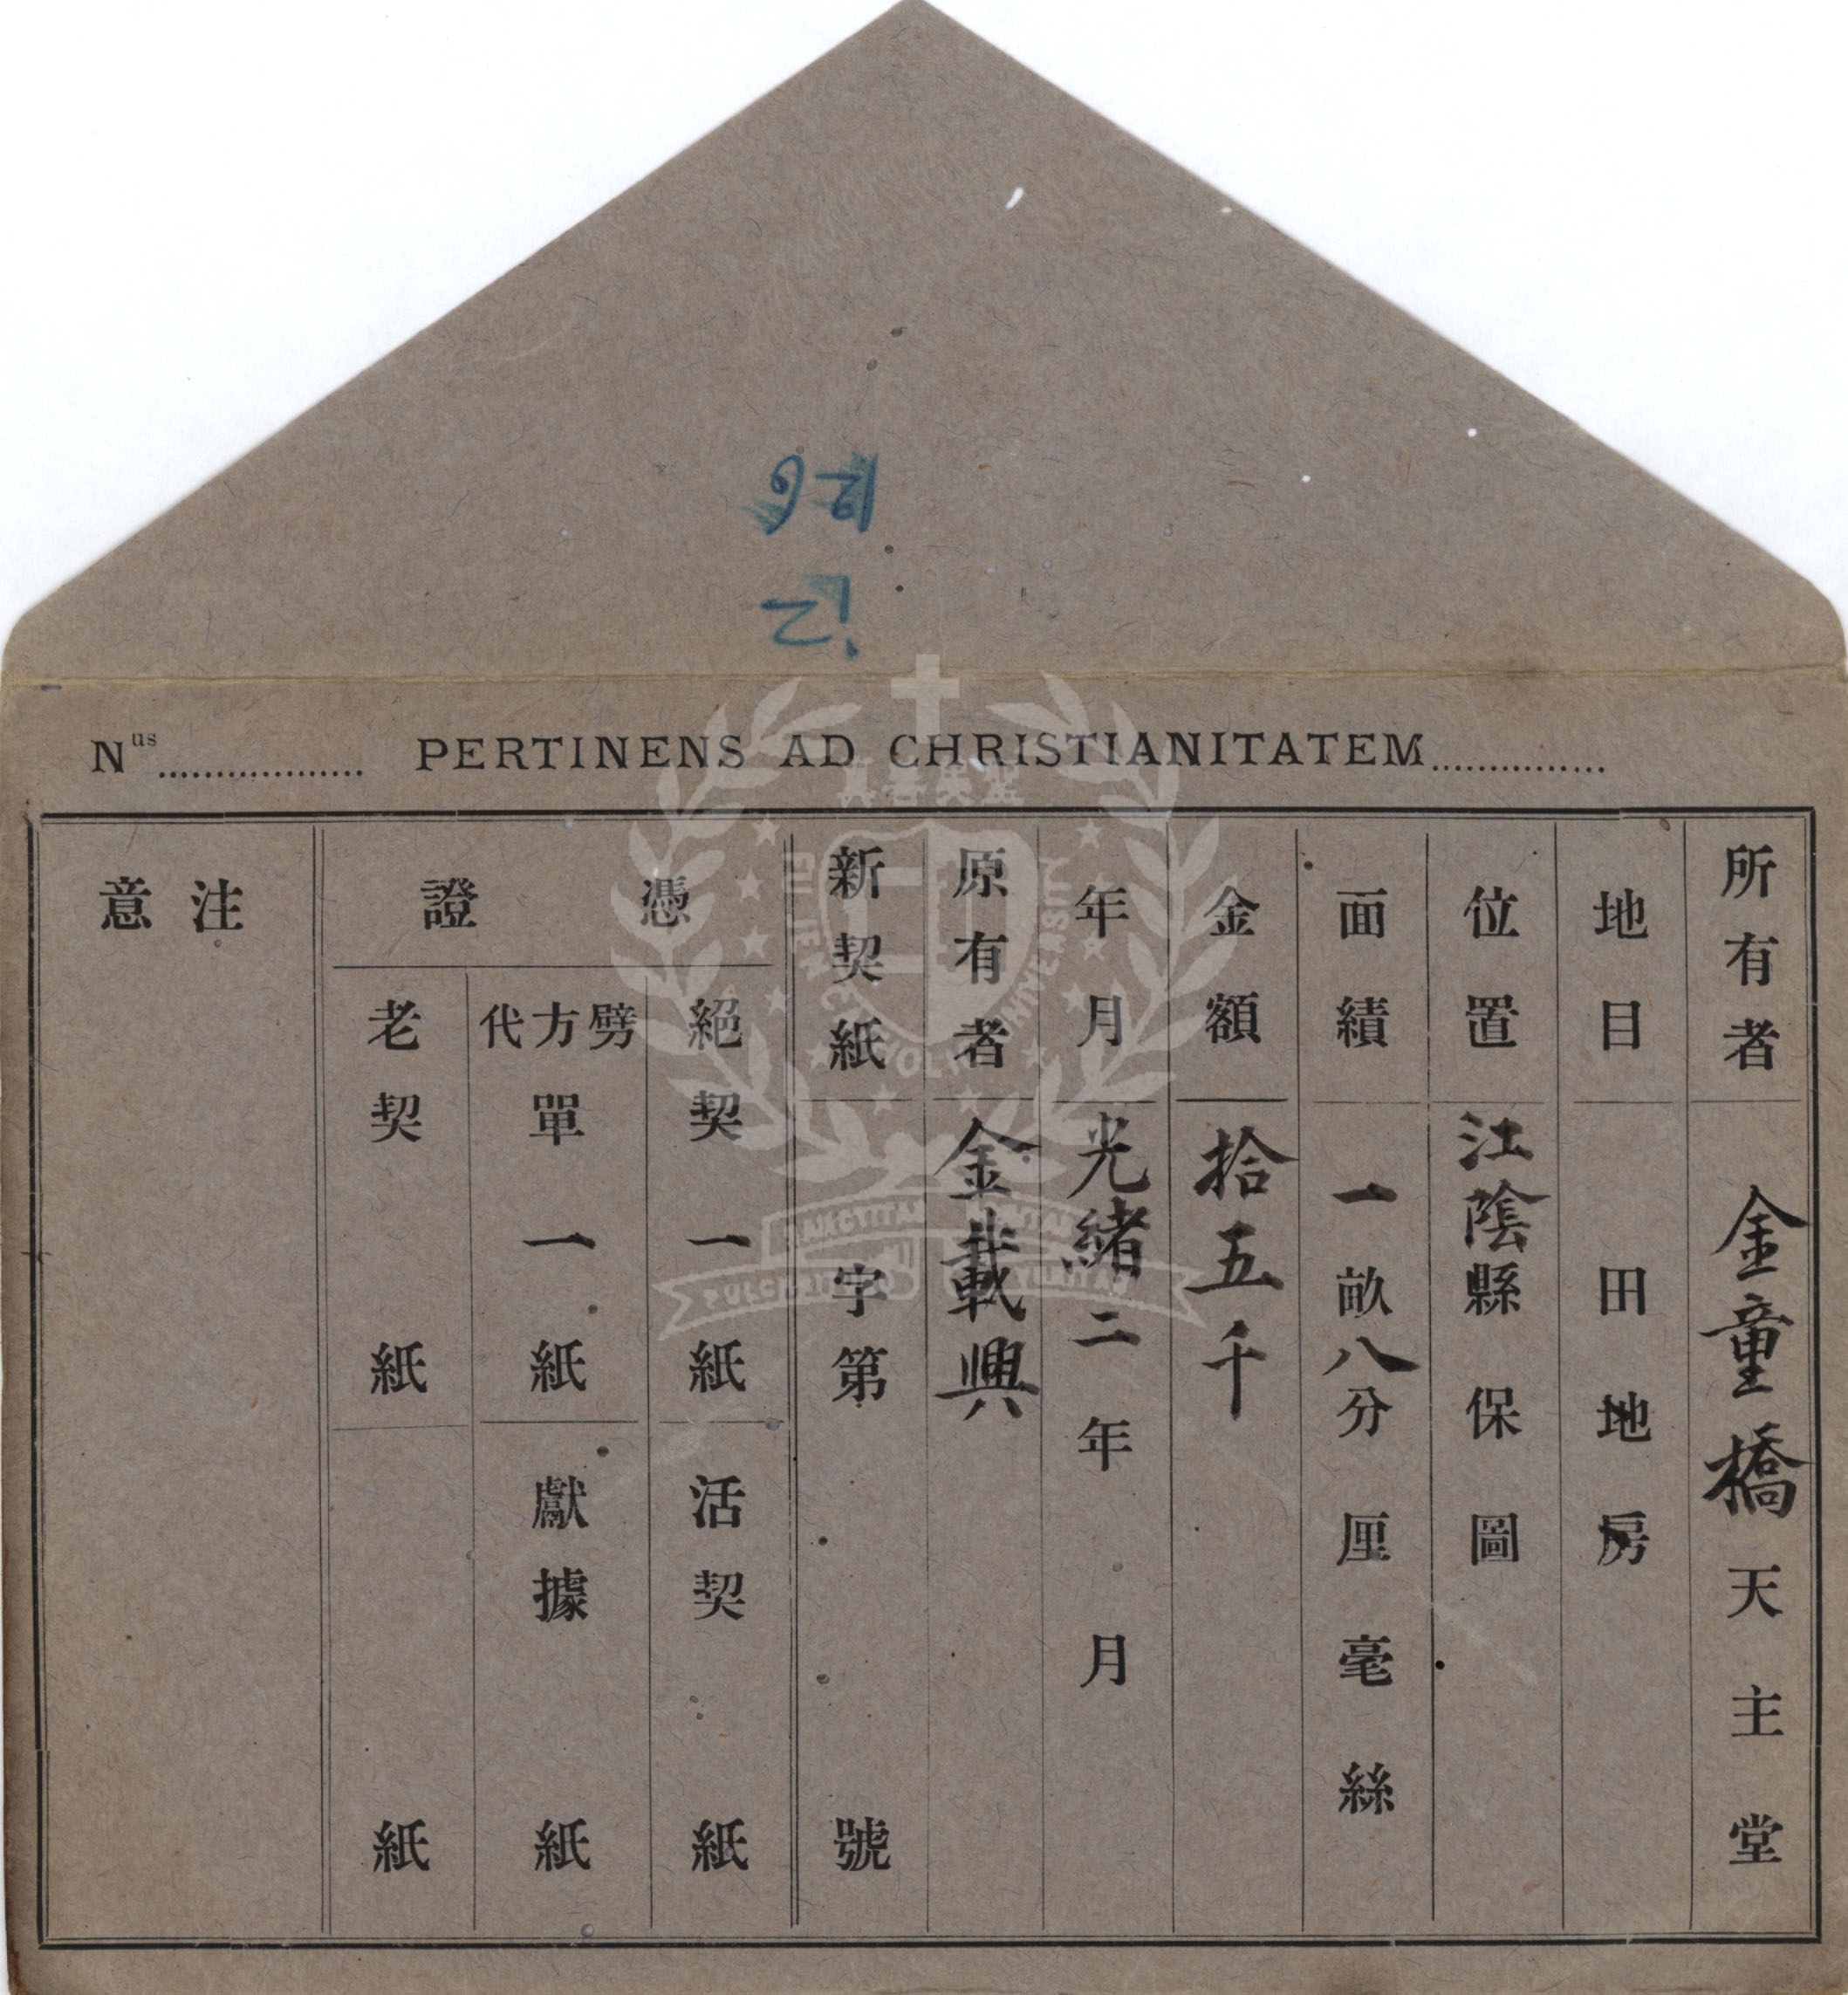 Nus.................. PERTINENS AD CHRISTIANITATEM...............
所有者 金童橋天主堂
地目 田地房
位置 江陰縣保圖
面績 一畝八分厘毫絲
金額 拾五千
年月 光緒二年月
原有者 金載興
新契紙 字第號
憑證
絕契一紙
活契紙
劈方代單一紙
獻據紙
老契紙
紙
注意